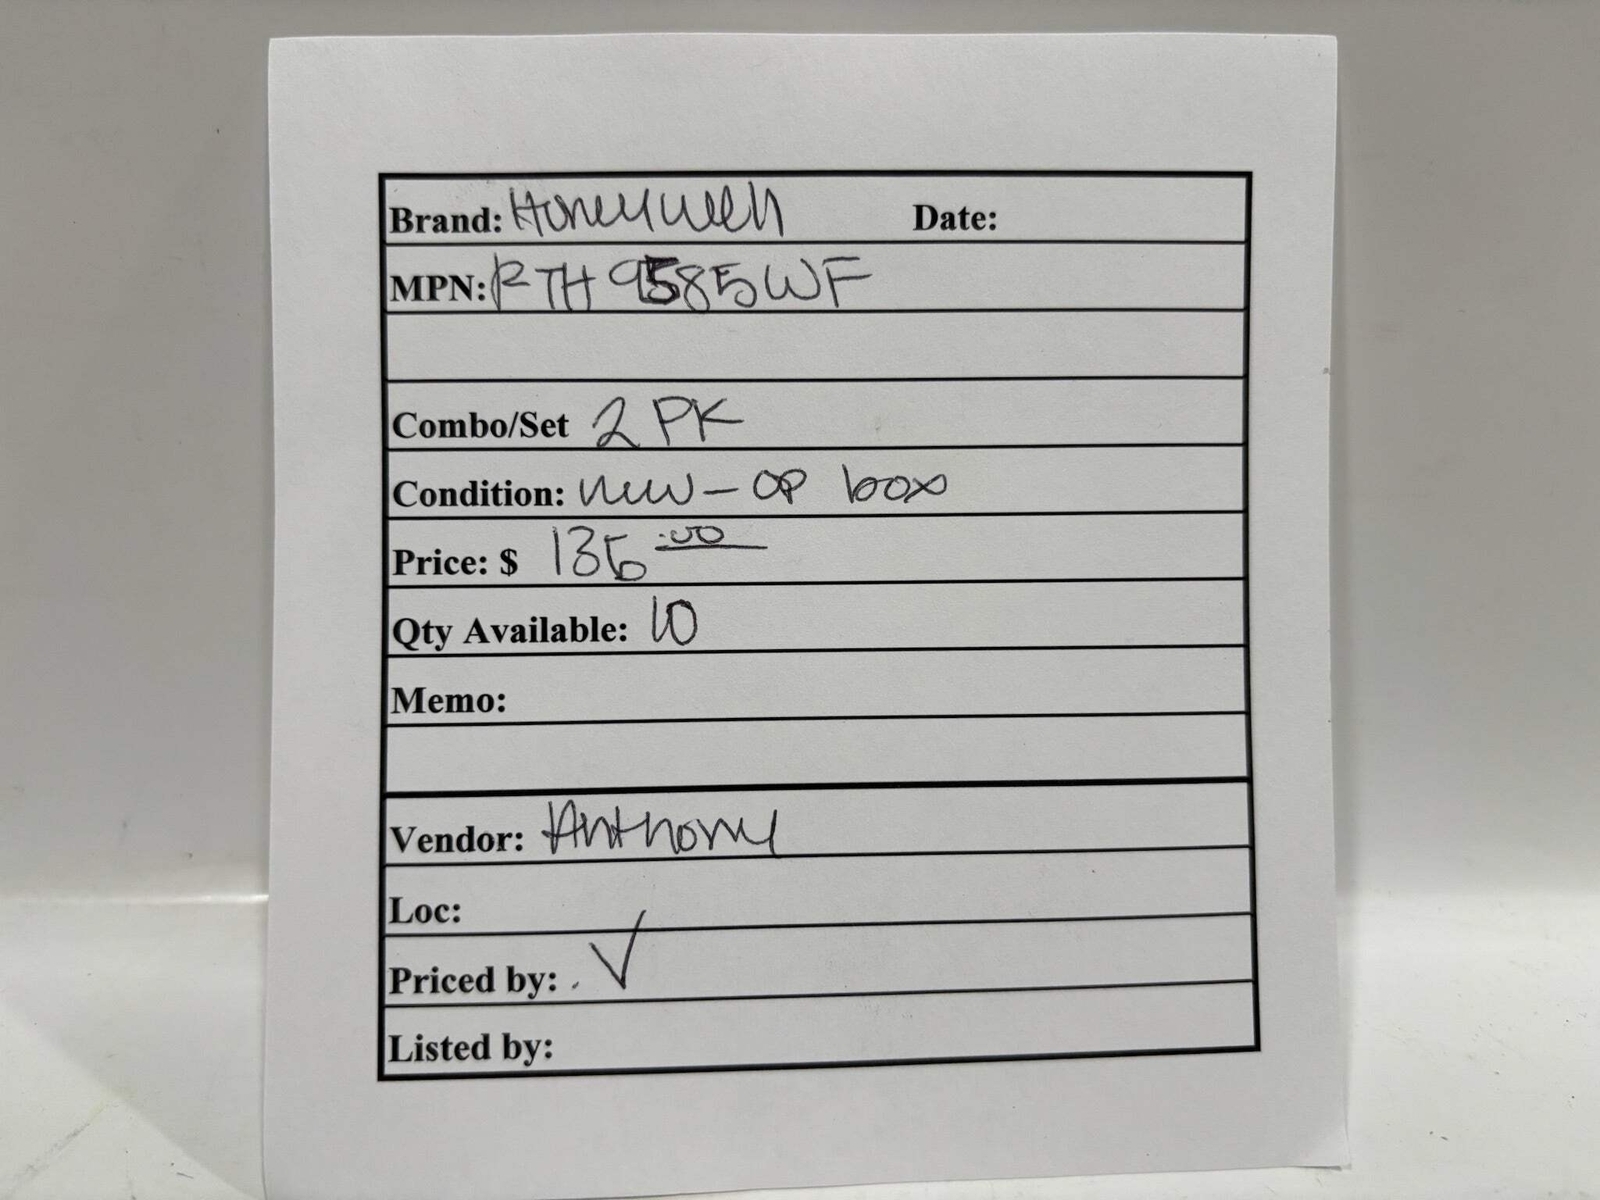 Brand: Honeywell Date:
MPN: RTH9585WF
Combo/Set 2 PK
Condition: new - op box
Price: $ 135.00
Qty Available: 10
Memo:
Vendor: Anthony
Loc:
Priced by: ✓
Listed by: